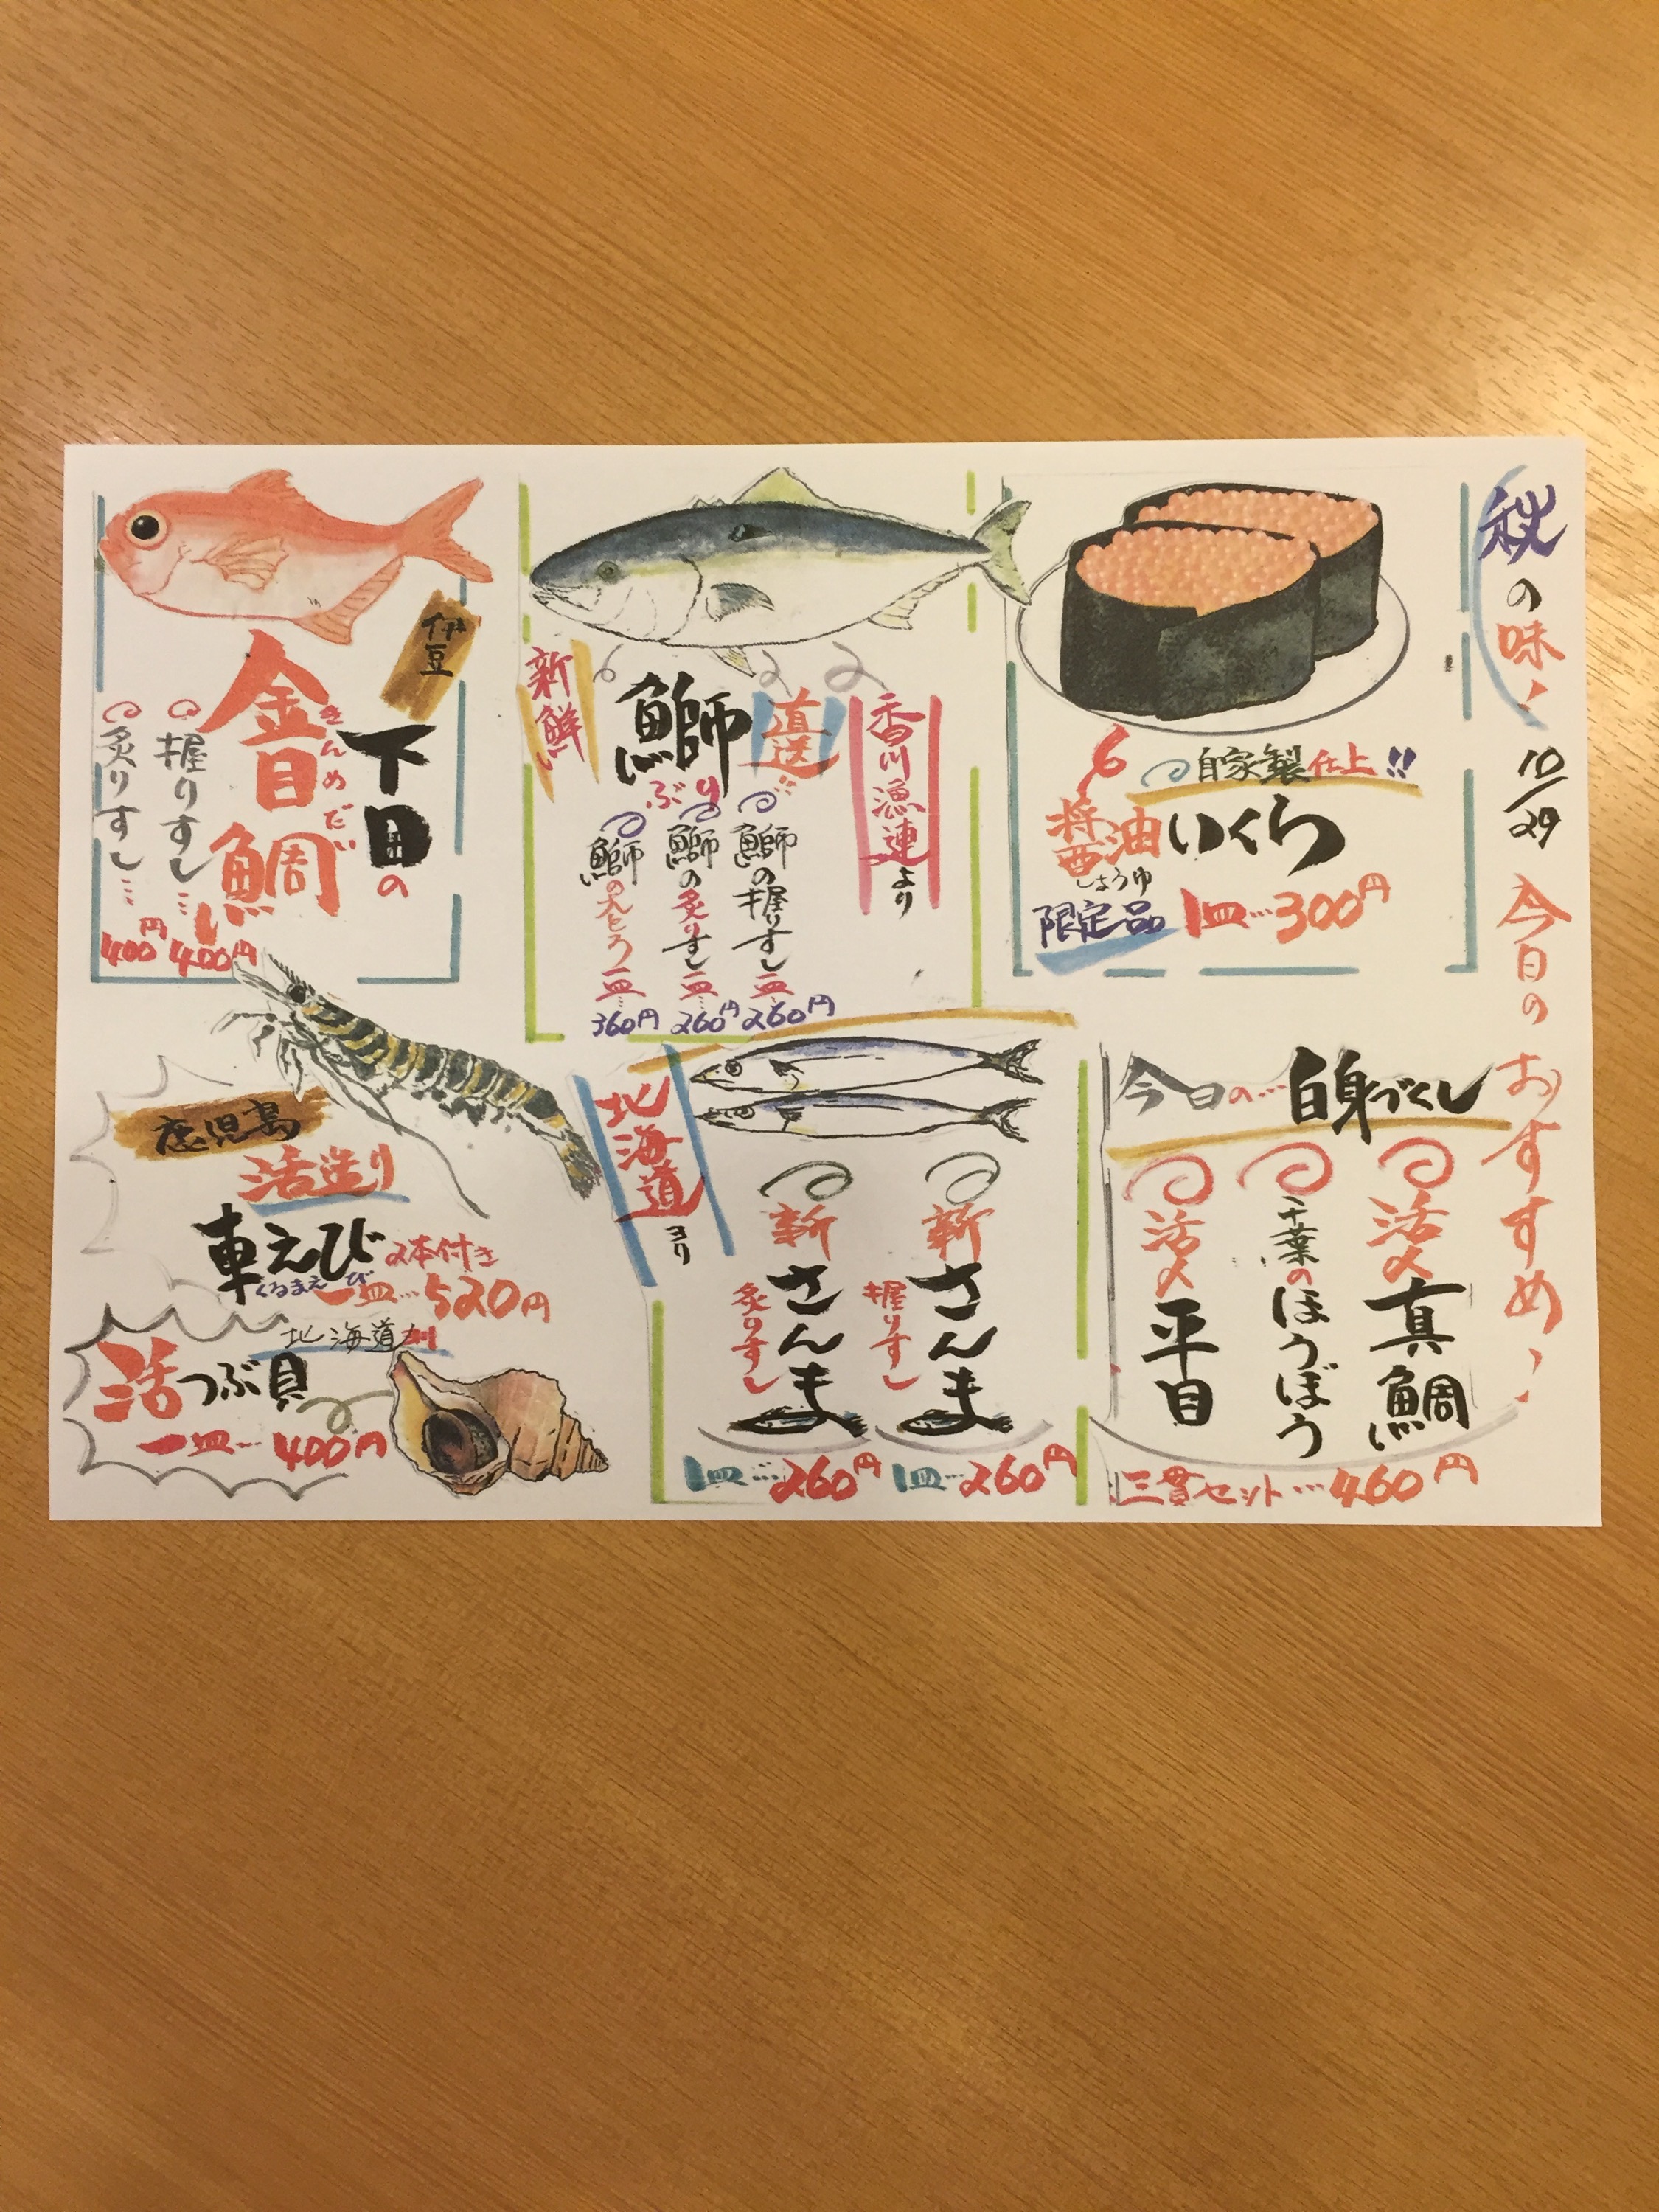 秋の味、
10/29 今日のおすすめ、
自家製仕上!!
醤油いくら
しょうゆ
限定品 1皿…300円
香川漁連より
直送
鰤
ぶり
新鮮
鰤の握りすし 一皿…260円
鰤の炙りすし 一皿…260円
鰤の大とろ 一皿…360円
伊豆
下田の
金目鯛
きんめだい
握りすし…400円
炙りすし…400円
今日の…白身づくし
活〆真鯛
千葉のほうぼう
活〆平目
三貫セット…460円
北海道より
新さんま
握りすし
1皿…260円
新さんま
炙りすし
1皿…260円
鹿児島
活造り
車えび 2本付き
くるまえび
一皿…520円
北海道
活つぶ貝
一皿…400円